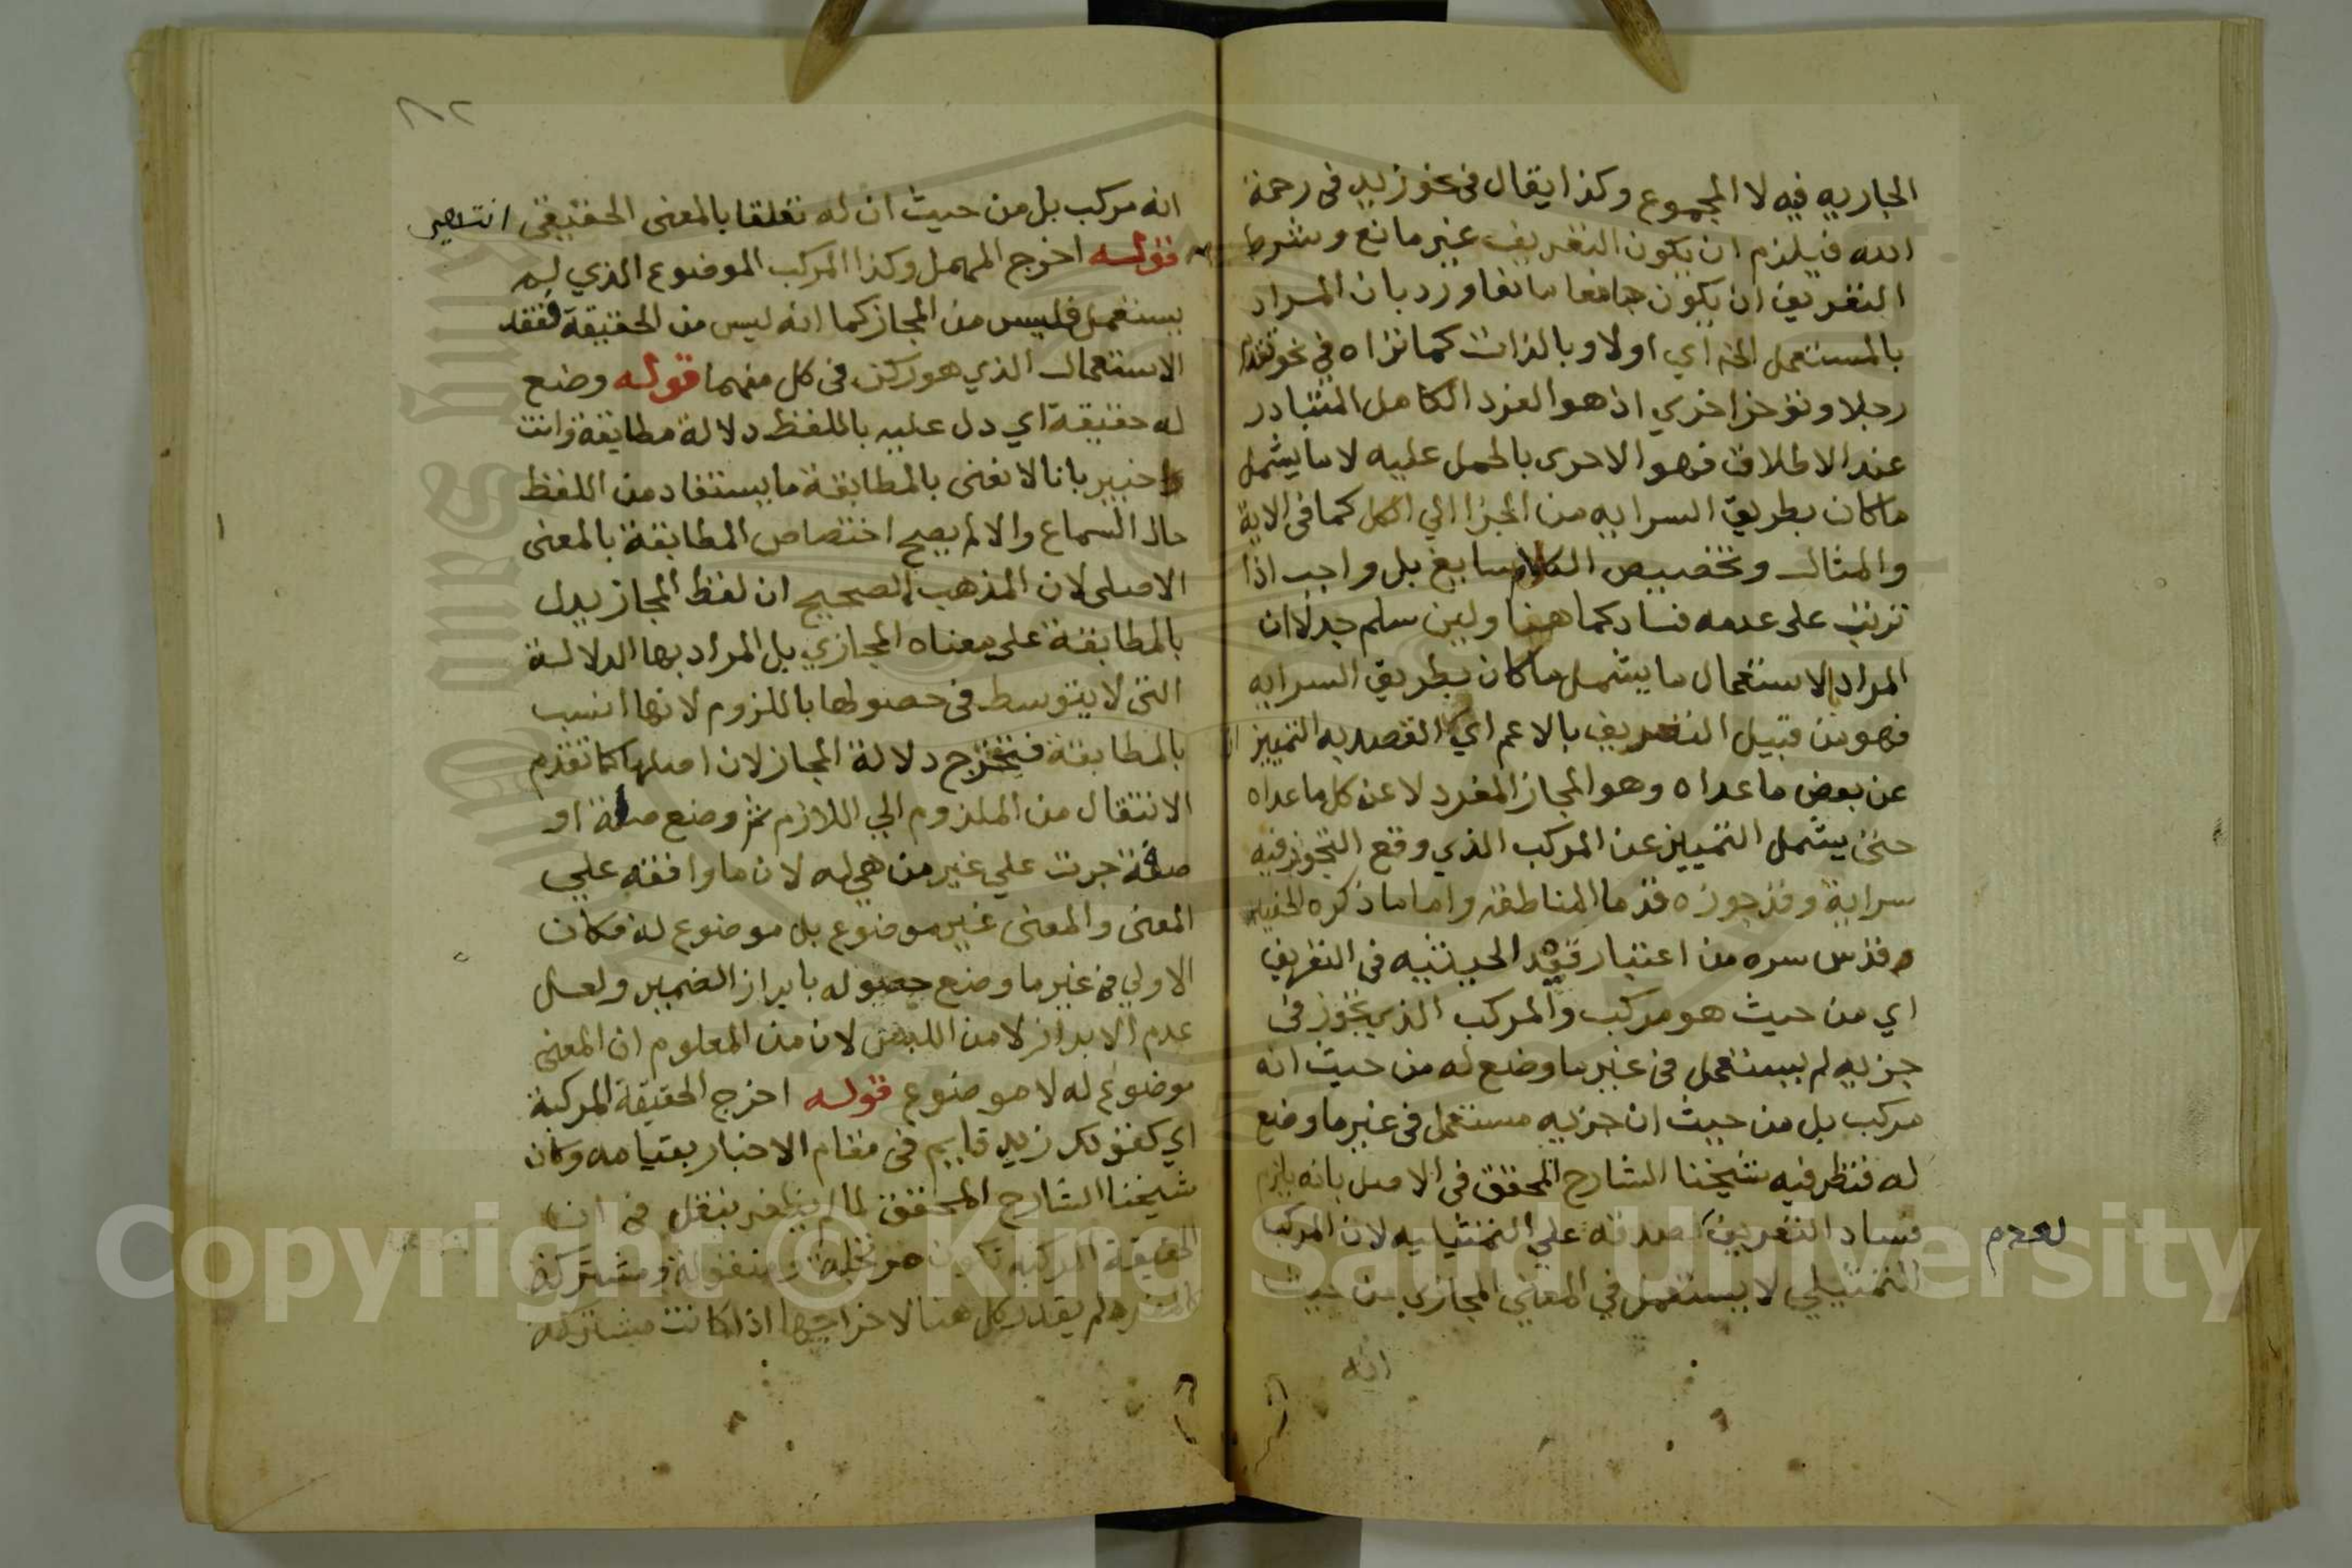 الجاريه فيه لا المجموع وكذا يقال في نحو زيد في رحمة
الله فيلزم ان يكون التعريف غير مانع وشرط
التعريف ان يكون جامعا مانعا ورد بان المراد
بالمستعمل الخ اي اولا وبالذات كما تراه في نحو تقدم
رجلا وتوخر اخري اذ هو الفرد الكامل المتبادر
عند الاطلاق فهو الاحرى بالحمل عليه لا ما يشمل
ما كان بطريق السرايه من الجزا الي الكل كما في الاية
والمثال وتخصيص الكلام سايغ بل واجب اذا
ترتب على عدمه فساد كما هنا ولين سلم جدلا ان
المراد بالاستعمال ما يشمل ما كان بطريق السرايه
فهو من قبيل التعريف بالاعم اي القصد به التمييز
عن بعض ما عداه وهو المجاز المفرد لا عن كل ما عداه
حتى يشمل التمييز عن المركب الذي وقع التجوز فيه
سراية وقد جوزه قدما المناطقه واما ما ذكره الحفيد
قدس سره من اعتبار قيد الحيثيه في التعريف
اي من حيث هو مركب والمركب الذي تجوز في
جزيه لم يستعمل في غير ما وضع له من حيث انه
مركب بل من حيث ان جزيه مستعمل في غير ما وضع
له فنظر فيه شيخنا الشارح المحقق في الاصل بانه يلزم
فساد التعريف لعدم صدقه علي التمثيليه لان المركب
التمثيلي لا يستعمل في المعني المجازي من حيث
انه
انه مركب بل من حيث ان له تعلقا بالمعنى الحقيقي انتهى
قوله اخرج المهمل وكذا المركب الموضوع الذي لم
يستعمل فليس من المجاز كما انه ليس من الحقيقة لفقد
الاستعمال الذي هو ركن في كل منهما قوله وضع
له حقيقة اي دل عليه باللفظ دلالة مطابقة وانت
خبير بانا لا نعنى بالمطابقة ما يستفاد من اللفظ
حال السماع والا لم يصح اختصاص المطابقة بالمعنى
الاصلى لان المذهب الصحيح ان لفظ المجاز يدل
بالمطابقة على معناه المجازي بل المراد بها الدلالة
التى لا يتوسط في حصولها باللزوم لانها انسب
بالمطابقة فتخرج دلالة المجاز لان اصلها كما تقدم
الانتقال من الملزوم الي اللازم ثم وضع صلة او
صفة جرت علي غير من هي له لان ما وافقه علي
المعنى والمعنى غير موضوع بل موضوع له فكان
الاولي في غير ما وضع حصوله بابراز الضمير ولعل
عدم الابراز لا من اللبس لان من المعلوم ان المعنى
موضوع له لا موضوع قوله اخرج الحقيقة المركبة
اي كقولك زيد قايم في مقام الاخبار بقيامه وكان
شيخنا الشارح المحقق لما لم يظفر بنقل في ان
الحقيقة المركبه تكون مرتجلة ومنقولة ومشتركة
لم يقدر كل هنا لاخراجها اذا كانت مشتركه
Copyright © King Saud University